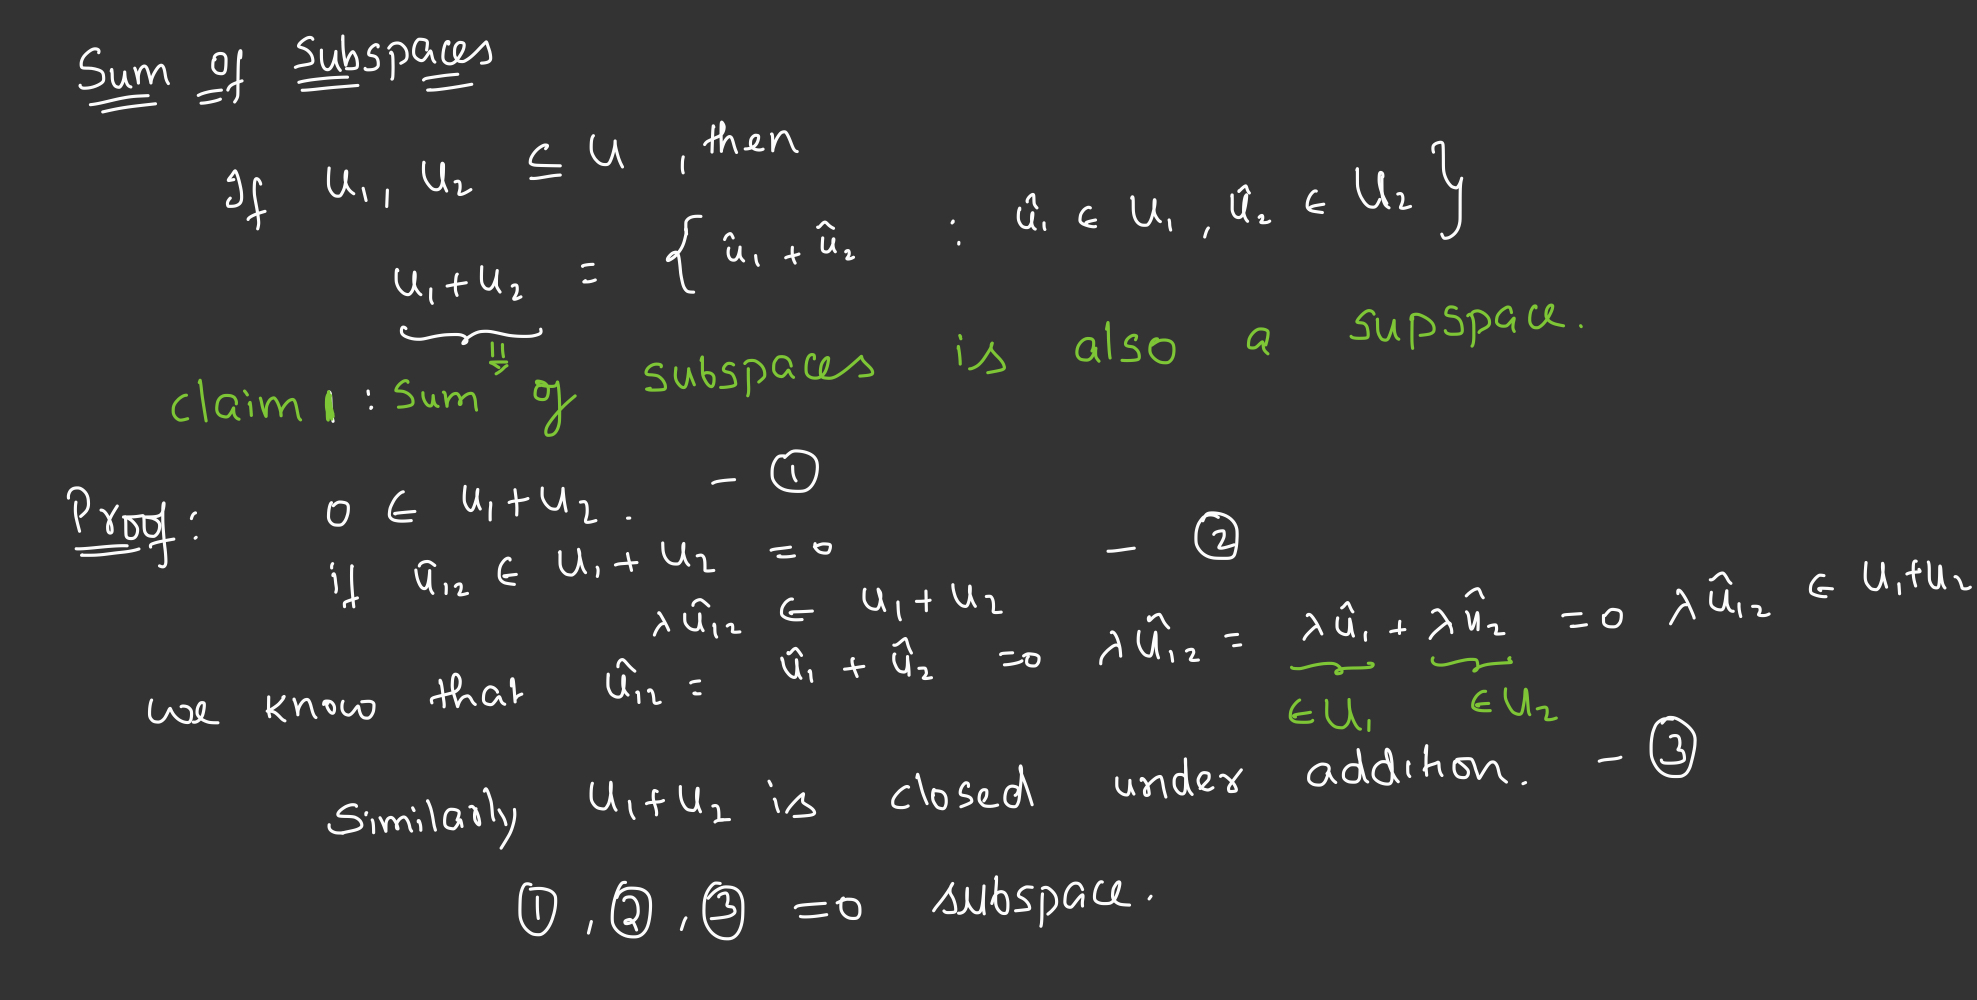 Sum of Subspaces
If U₁, U₂ ⊆ U, then
U₁+U₂ = { û₁ + û₂ : û₁ ∈ U₁, û₂ ∈ U₂ }
claim 1 : Sum of subspaces is also a supspace.
Proof: 0 ∈ U₁+U₂. - ①
if û₁₂ ∈ U₁+U₂ ⇒ λû₁₂ ∈ U₁+U₂ - ②
we know that û₁₂ = û₁ + û₂ ⇒ λû₁₂ = λû₁ + λû₂ ⇒ λû₁₂ ∈ U₁+U₂
∈U₁ ∈U₂
Similarly U₁+U₂ is closed under addition. - ③
①, ②, ③ ⇒ subspace.